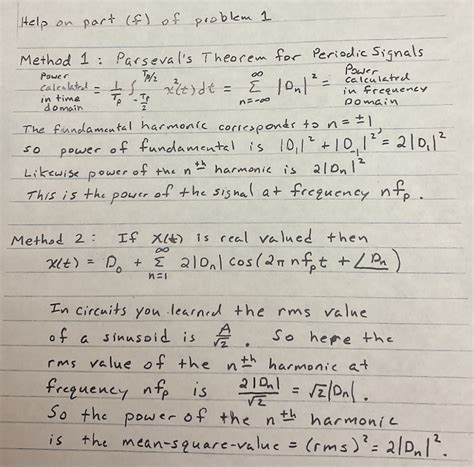 Help on part (f) of problem 1
Method 1 : Parseval's Theorem for Periodic Signals
Power calculated in time domain = 1/Tp ∫_{-Tp/2}^{Tp/2} x²(t) dt = Σ_{n=-∞}^{∞} |Dn|² = Power calculated in frequency Domain
The fundamental harmonic corresponds to n = ±1
so power of fundamental is |D₁|² + |D₋₁|² = 2|D₁|²
Likewise power of the nth harmonic is 2|Dn|²
This is the power of the signal at frequency nfp.
Method 2 : If x(t) is real valued then
x(t) = D₀ + Σ_{n=1}^{∞} 2|Dn| cos(2πnfpt + ∠Dn)
In circuits you learned the rms value
of a sinusoid is A/√2. So here the
rms value of the nth harmonic at
frequency nfp is 2|Dn|/√2 = √2|Dn|.
So the power of the nth harmonic
is the mean-square-value = (rms)² = 2|Dn|².